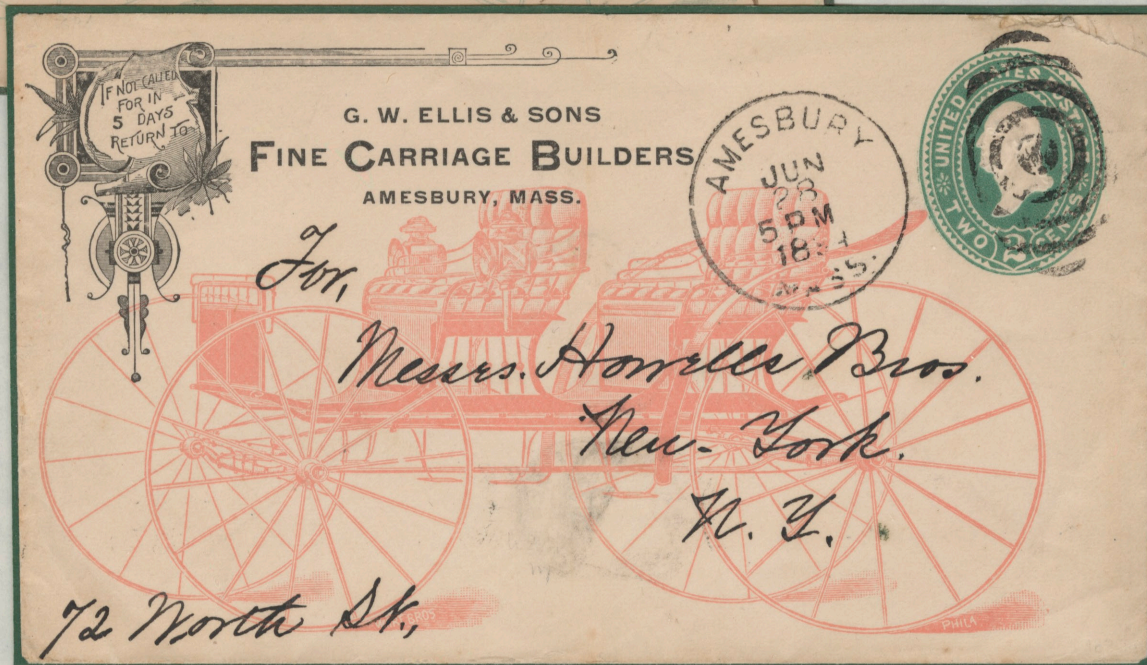 IF NOT CALLED
FOR IN
5 DAYS
RETURN TO
G. W. ELLIS & SONS
FINE CARRIAGE BUILDERS
AMESBURY, MASS.
AMESBURY
JUN
28
5 PM
MASS.
UNITED STATES
TWO 2 CENTS
For,
Messrs. Howells Bros.
New-York.
N. Y.
72 Worth St.,
BROS
PHILA